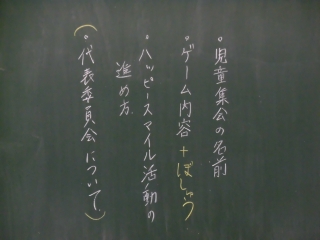 ◦児童集会の名前
◦ゲーム内容+ぼしゅう
◦ハッピースマイル活動の
進め方
(◦代表委員会について)